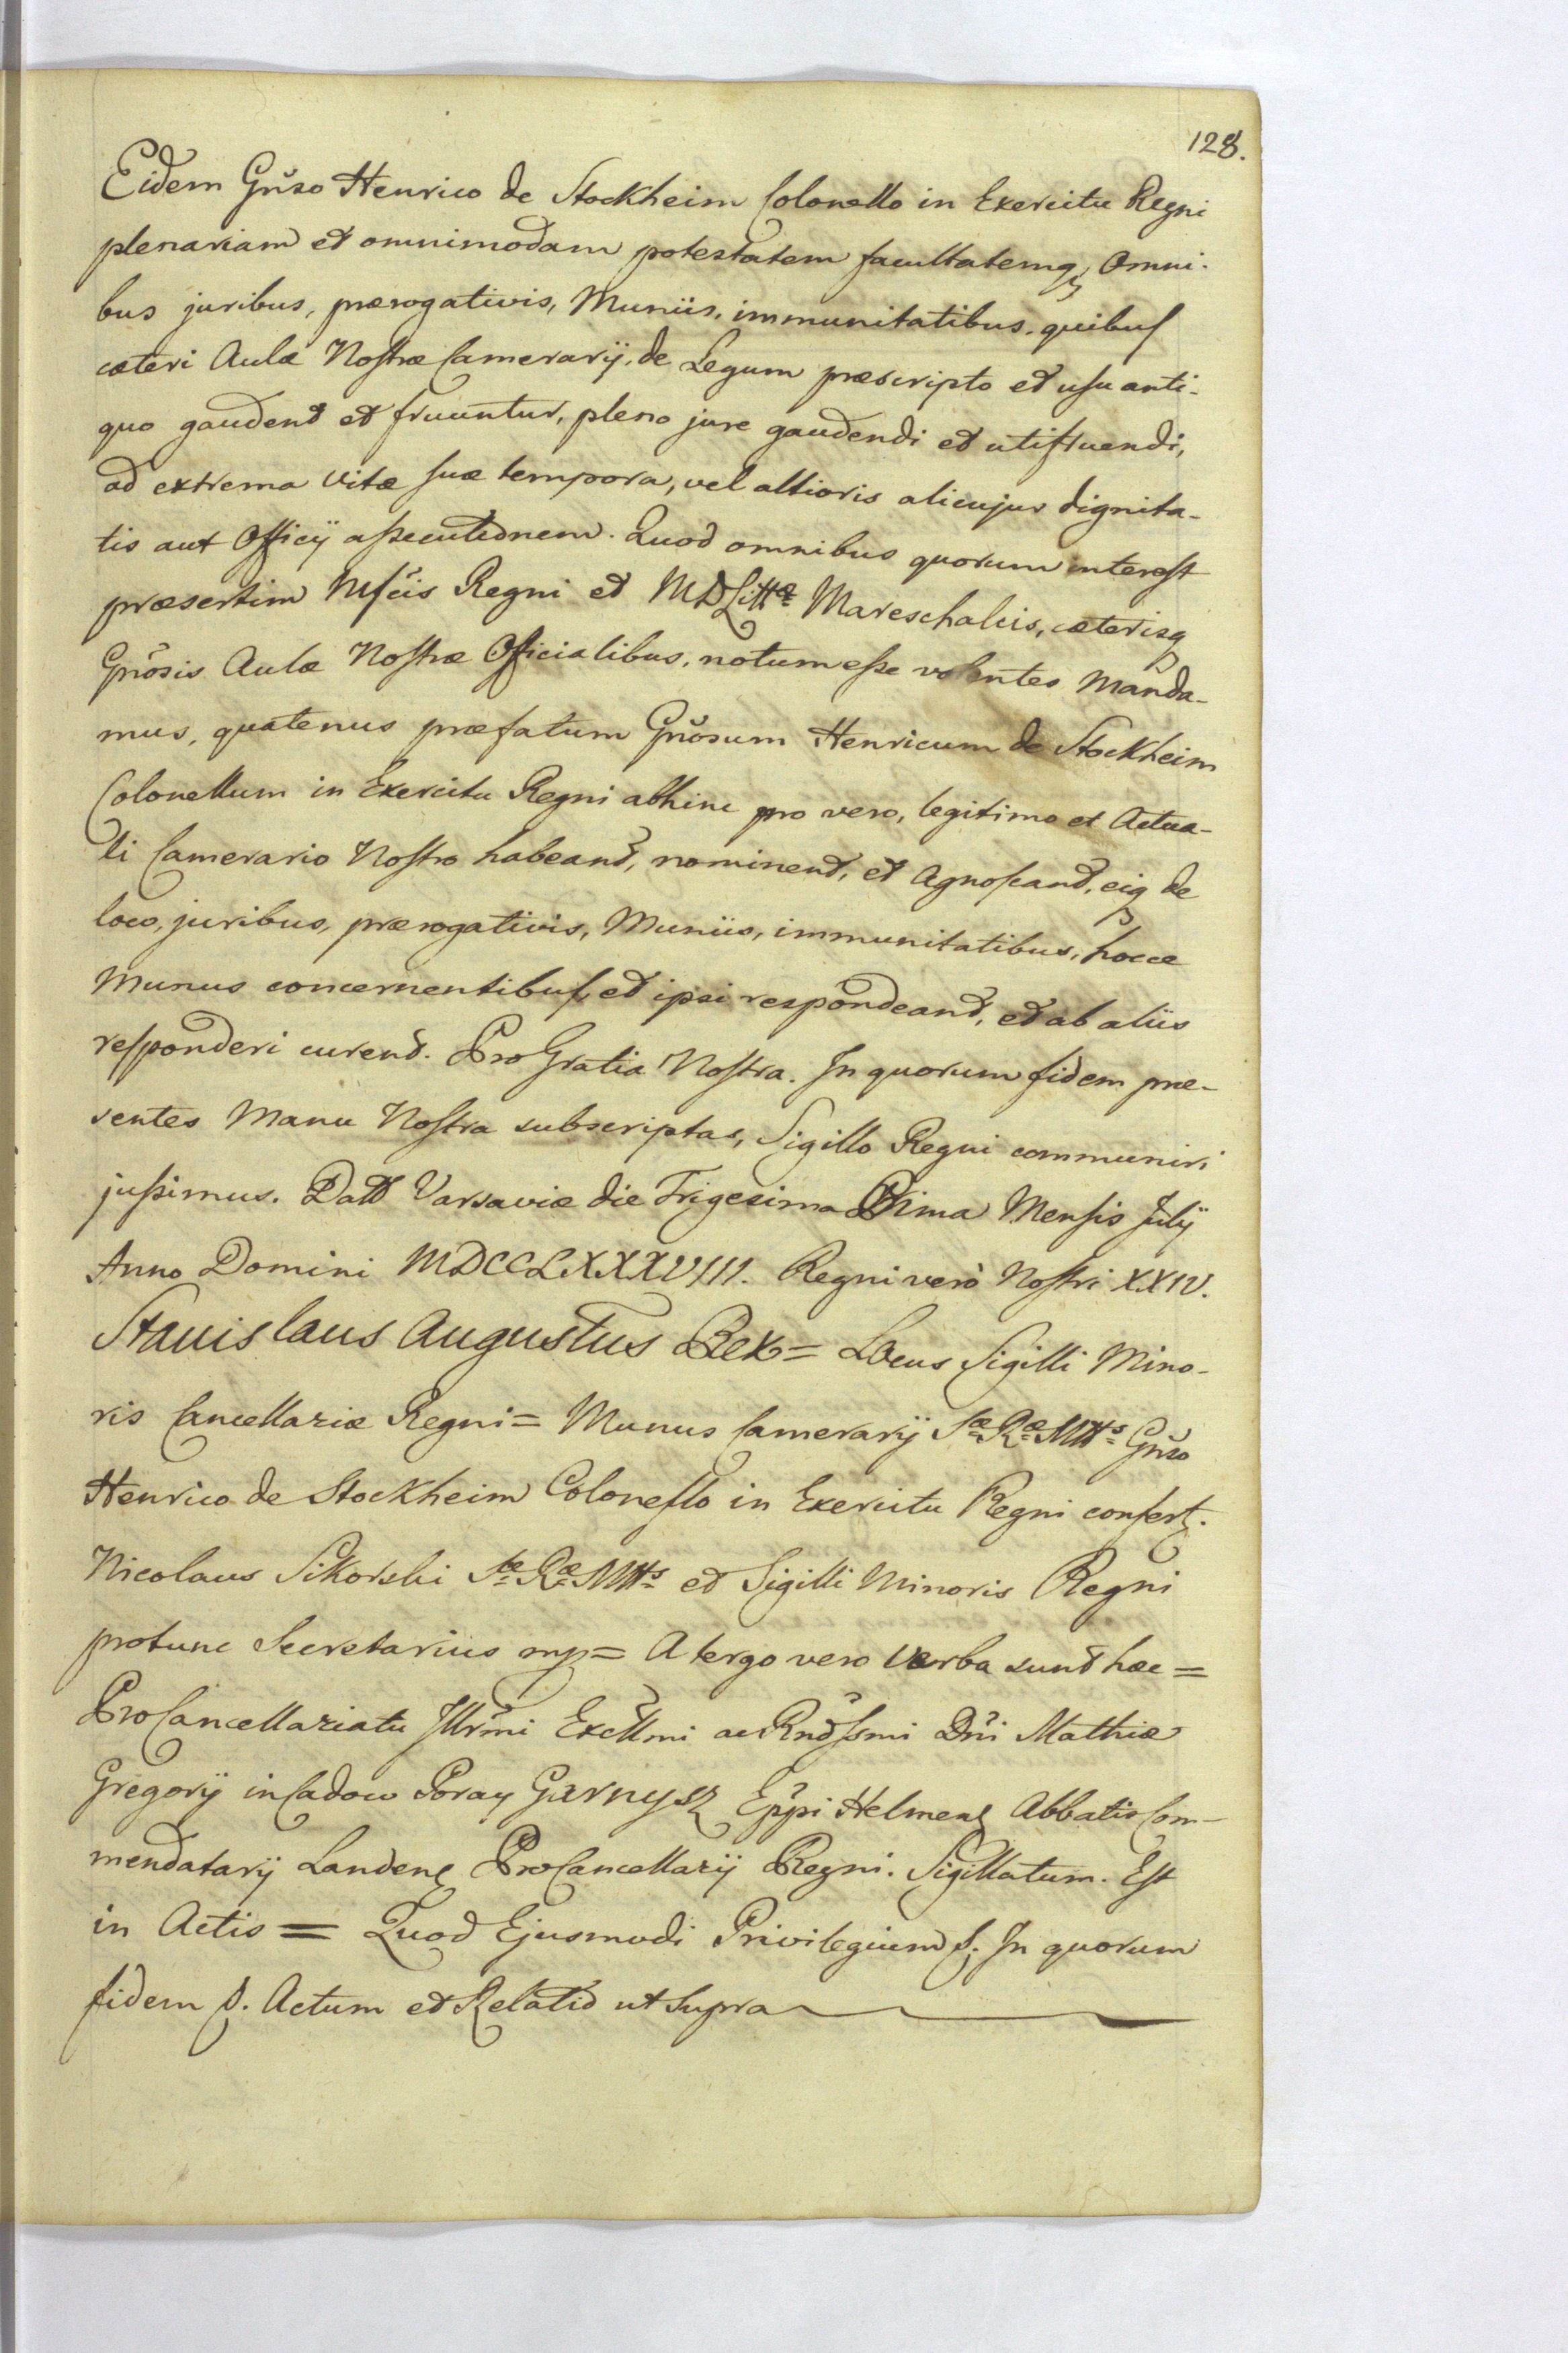 128.
Eidem Gñso Henrico de Stockheim Colonello in Exercitu Regni
plenariam et omnimodam potestatem facultatemq, Omni-
bus juribus, prærogativis, Muniis, immunitatibus, quibus
cæteri Aulæ Nostræ Camerarij, de Legum præscripto et usu anti-
quo gaudent et fruuntur, pleno jure gaudendi et utifruendi,
ad extrema vitæ suæ tempora, vel altioris alicujus dignita-
tis aut Officij assecutionem. Quod omnibus quorum interest
præsertim Mfcis Regni et MDLittæ Mareschalcis, cæterisq
Gñosis Aulæ Nostræ Officialibus, notum esse volentes Manda-
mus, quatenus præfatum Gñosum Henricum de Stockheim
Colonellum in Exercitu Regni abhinc pro vero, legitimo et Actua-
li Camerario Nostro habeant, nominent, et Agnoscant, eiq de
loco, juribus, prærogativis, Muniis, immunitatibus, hocce
Munus concernentibus, et ipsi respondeant, et ab aliis
responderi curent. Pro Gratia Nostra. In quorum fidem præ-
sentes Manu Nostra subscriptas, Sigillo Regni communiri
jussimus. Datt Varsaviæ die Trigesima Prima Mensis Julij
Anno Domini MDCCLXXXVIII. Regni verò Nostri XXIV.
Stanislaus Augustus Rex = Locus Sigilli Mino-
ris Cancellariæ Regni = Munus Camerarij Sæ Ræ Mttis Gñso
Henrico de Stockheim Colonello in Exercitu Regni confert.
Nicolaus Sikorski Sæ Ræ Mttis et Sigilli Minoris Regni
protunc Secretarius mp = A tergo vero verba sunt hæc =
ProCancellariatu Jllr̃mi Excell̃mi ac Rnd̃ssmi Dñi Mathiæ
Gregorij in Cadow Poray Garnysz Epp̃i Helmens Abbatis Com-
mendatarij Landens ProCancellarij Regni. Sigillatum. Est
in Actis = Quod Ejusmodi Privilegium S. In quorum
fidem S. Actum et Relatio ut supra